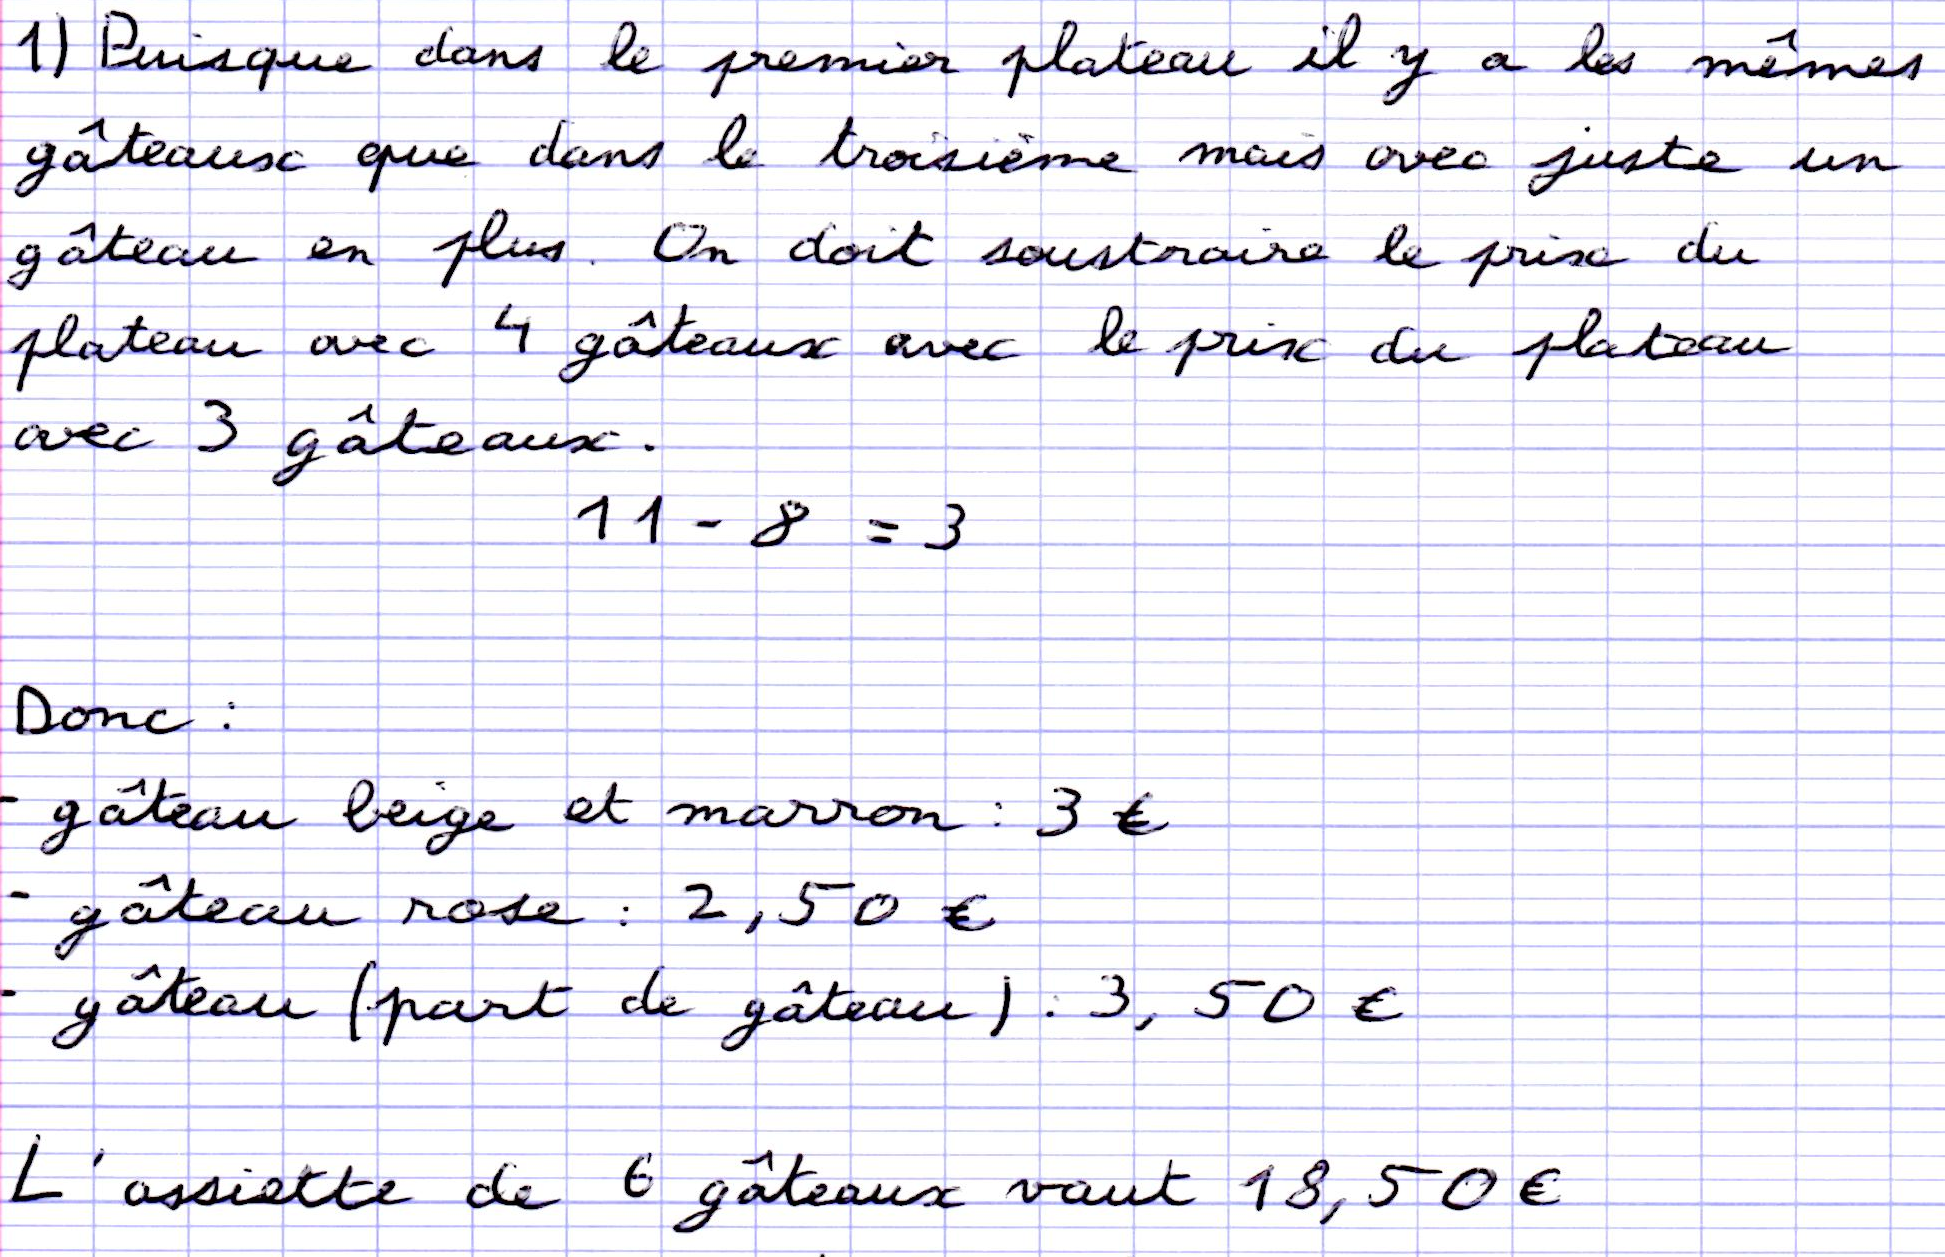 1) Puisque dans le premier plateau il y a les mêmes
gâteaux que dans le troisième mais avec juste un
gâteau en plus. On doit soustraire le prix du
plateau avec 4 gâteaux avec le prix du plateau
avec 3 gâteaux.
11 - 8 = 3
Donc :
- gâteau beige et marron : 3 €
- gâteau rose : 2,50 €
- gâteau (part de gâteau) : 3,50 €
L'assiette de 6 gâteaux vaut 18,50 €